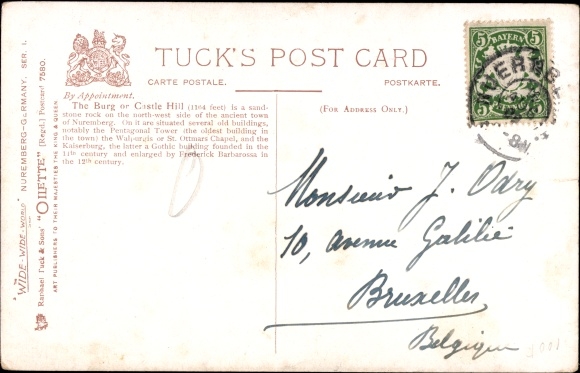 TUCK'S POST CARD
CARTE POSTALE.
POSTKARTE.
By Appointment.
(FOR ADDRESS ONLY.)
The Burg or Castle Hill (1164 feet) is a sand-
stone rock on the north-west side of the ancient town
of Nuremberg. On it are situated several old buildings,
notably the Pentagonal Tower (the oldest building in
the town) the Walpurgis or St. Ottmars Chapel, and the
Kaiserburg, the latter a Gothic building founded in the
11th century and enlarged by Frederick Barbarossa in
the 12th century.
"THE WIDE-WIDE-WORLD" NUREMBERG-GERMANY, SER. I.
Raphael Tuck & Sons' "OILETTE" [Regd.] Postcard 7580.
ART PUBLISHERS TO THEIR MAJESTIES THE KING & QUEEN
5 BAYERN 5
Monsieur J. Odry
10, avenue Galilié
Bruxelles
Belgique